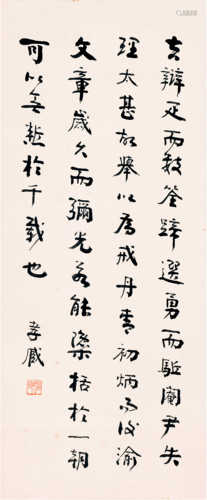 夫辯疋而數筌蹄選勇而驅閹尹失
理太甚故舉以為戒丹青初炳而後渝
文章歲久而彌光若能檃栝於一朝
可以無慙於千載也
孝臧